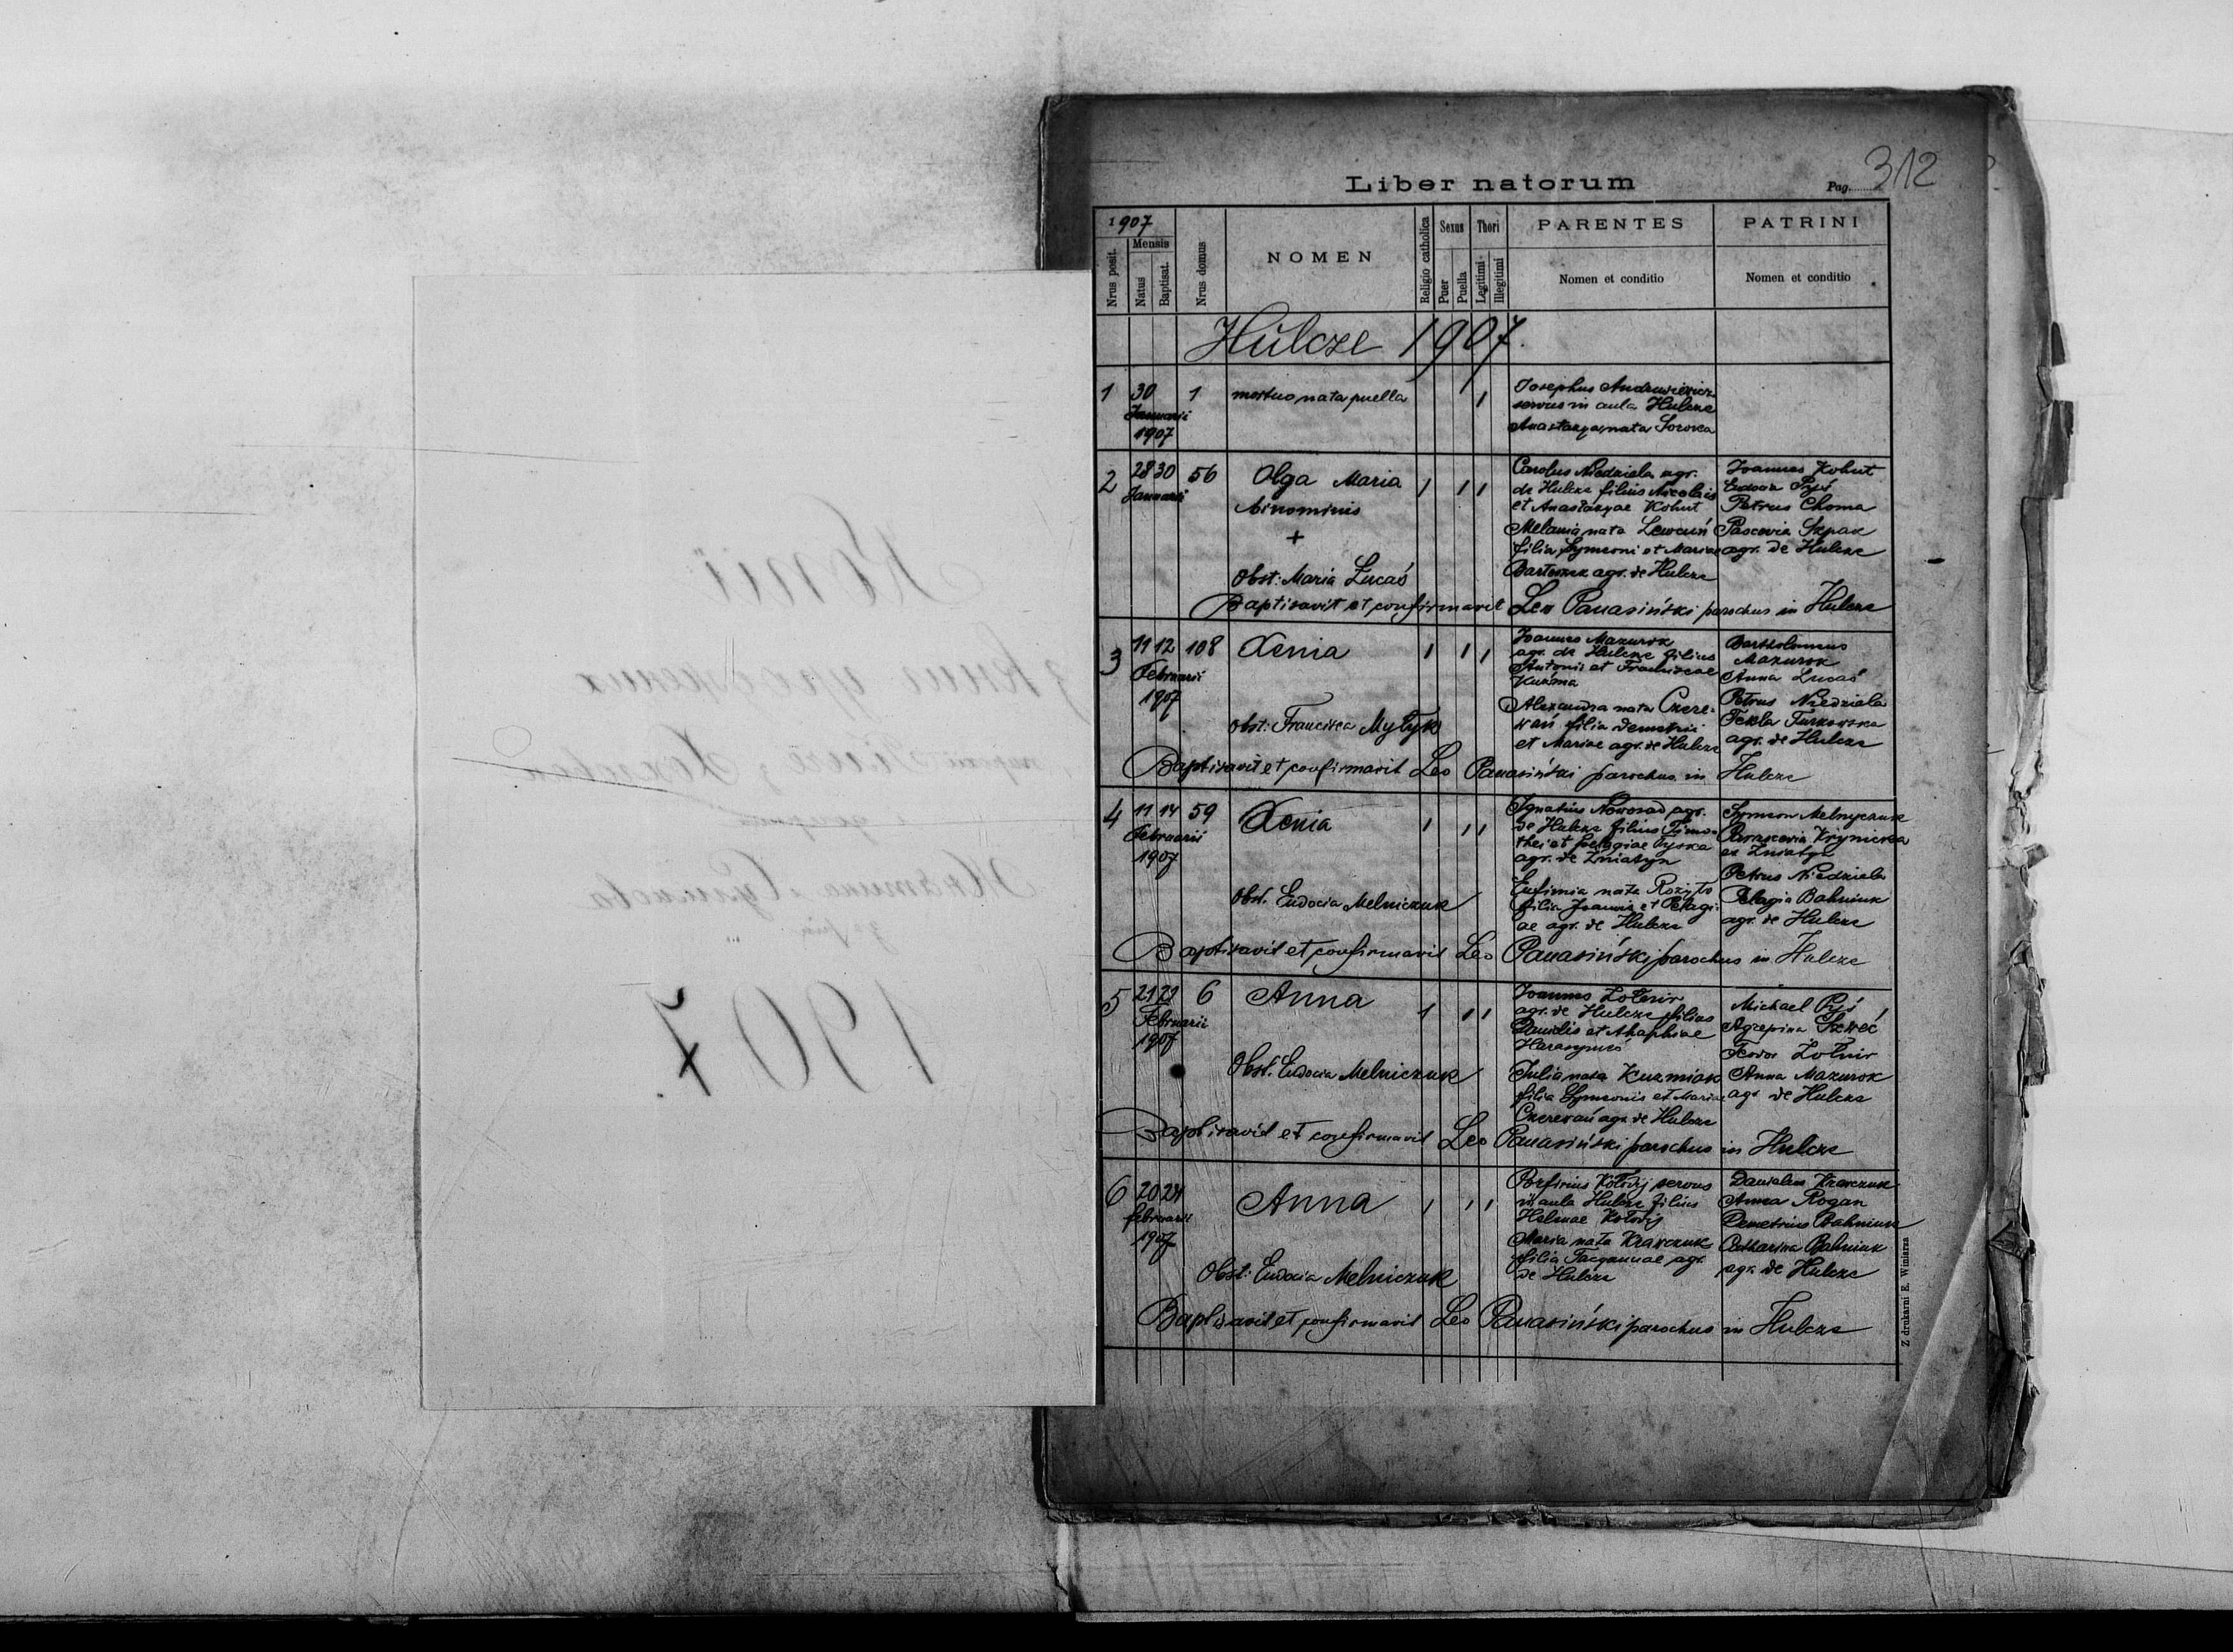 Liber natorum
Pag. 312
1907
Nrus posit.
Mensis
Natus
Baptisat.
Nrus domus
NOMEN
Religio catholica
Sexus
Puer
Puella
Thori
Legitimi
Illegitimi
PARENTES
Nomen et conditio
PATRINI
Nomen et conditio
Hulcze 1907.
1 30 1 mortuo nata puella 1
Januarii
1907
Josephus Andruciewicz
servus in aula Hulcze
Anastazya nata
2 28 30 56 Olga Maria 1 1 1
Januarii
binominis
+
Obst: Maria Lucas
Carolus Niedziela agr.
de Hulcze filius Nicolais
et Anastazyae Kohut
Melania nata Lewcuń
filia Symeoni et Mariae
agr. de Hulcze
Joannes Kohut
Pyś
Petrus Choma
Pascevia Szpak
agr. de Hulcze
Baptisavit et confirmavit Leo Panasiński parochus in Hulcze
3 11 12 108 Xenia 1 1 1
Februarii
1907
Obst: Francisca Mytyk
Joannes Mazurok
agr. de Hulcze filius
Antonii et Franciscae
Kuzma
Alexandra nata Czere-
wań filia Demetrii
et Mariae agr. de Hulcze
Bartholomeus
Mazurok
Anna Lucas
Petrus Niedziela
Tekla Turkowska
agr. de Hulcze
Baptisavit et confirmavit Leo Panasiński parochus in Hulcze
4 11 14 59 Xenia 1 1 1
Februarii
1907
Obst. Eudocia Melniczuk
Ignatius Nowosad agr.
de Hulcze filius Timo-
thei et Pelagiae
agr. de Żniatyn
Eufimia nata Rozyto
filia Joannis et Pelagi-
ae agr. de Hulcze
Symeon Melnyczuk
Parascevia Krynicka
ex Żniatyn
Petrus Niedziela
Pelagia Bahniuk
agr. de Hulcze
Baptisavit et confirmavit Leo Panasiński parochus in Hulcze
5 21 21 6 Anna 1 1 1
Februarii
1907
Obst. Eudocia Melniczuk
Joannes Zołnir
agr. de Hulcze filius
Danielis et Ahaphiae
Harasymes
Julia nata Kuzmiak
filia Symeonis et Mariae
Czerewań agr. de Hulcze
Michael Pyś
Agrepina
Teodor Zołnir
Anna Mazurok
agr de Hulcze
Baptisavit et confirmavit Leo Panasiński parochus in Hulcze
6 20 24 Anna 1 1 1
februarii
1907
Obst: Eudocia Melniczuk
Porfirius Kołodij servus
in aula Hulcze filius
Helenae Kołodij
Maria nata Krawczuk
filia Tacyannae agr.
de Hulcze
Danielus Krawczuk
Anna Rogan
Demetrius Bahniuk
Catharina Bahniuk
agr. de Hulcze
Baptisavit et confirmavit Leo Panasiński parochus in Hulcze
Z drukarni E. Winiarza
1907